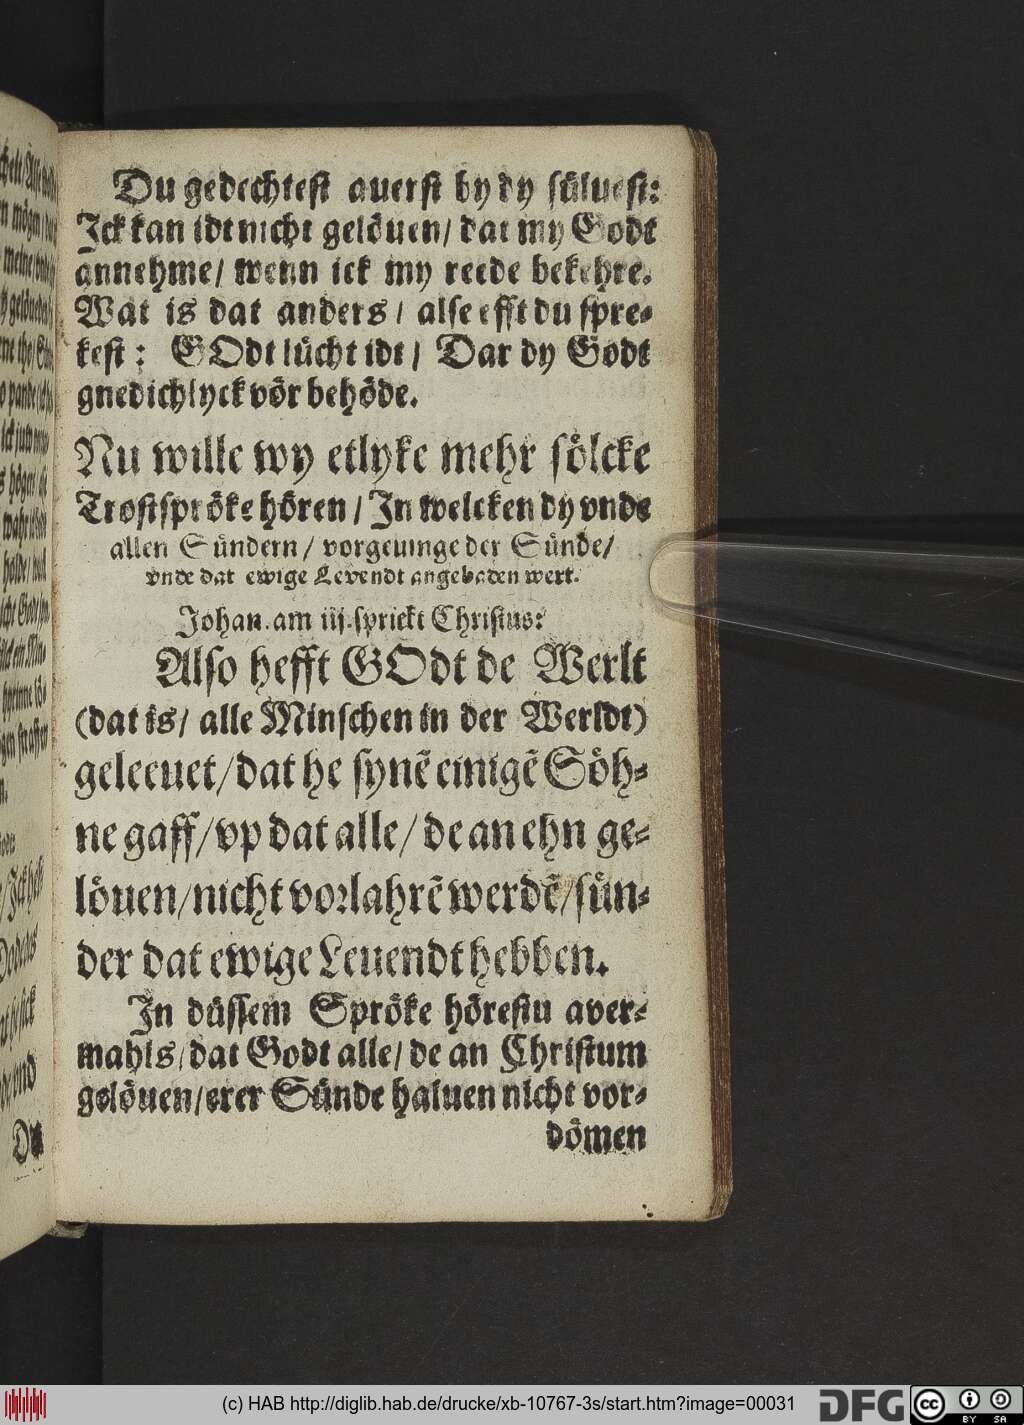 Du gedechtest auerst by dy süluest:
Ick kan idt nicht gelöuen/ dat my Godt
annehme/ wenn ick my reede bekehre.
Wat is dat anders/ alse efft du spre-
kest: GOdt lücht idt/ Dar dy Godt
gnedichlyck vör behöde.
Nu wille wy etlyke mehr sölcke
Trostspröke hören/ In welcken dy vnde
allen Sündern/ vorgeuinge der Sünde/
vnde dat ewige Levendt angebaden wert.
Johan. am iij. sprickt Christus:
Also hefft GOdt de Werlt
(dat is/ alle Minschen in der Werldt)
geleeuet/ dat he synē einigē Söh-
ne gaff/ vp dat alle/ de an ehn ge-
löuen/ nicht vorlahrē werdē/ sün-
der dat ewige Leuendt hebben.
In düssem Spröke hörestu aver-
mahls/ dat Godt alle/ de an Christum
gelöuen/ erer Sünde haluen nicht vor-
dömen
(c) HAB http://diglib.hab.de/drucke/xb-10767-3s/start.htm?image=00031
DFG
cc
BY SA